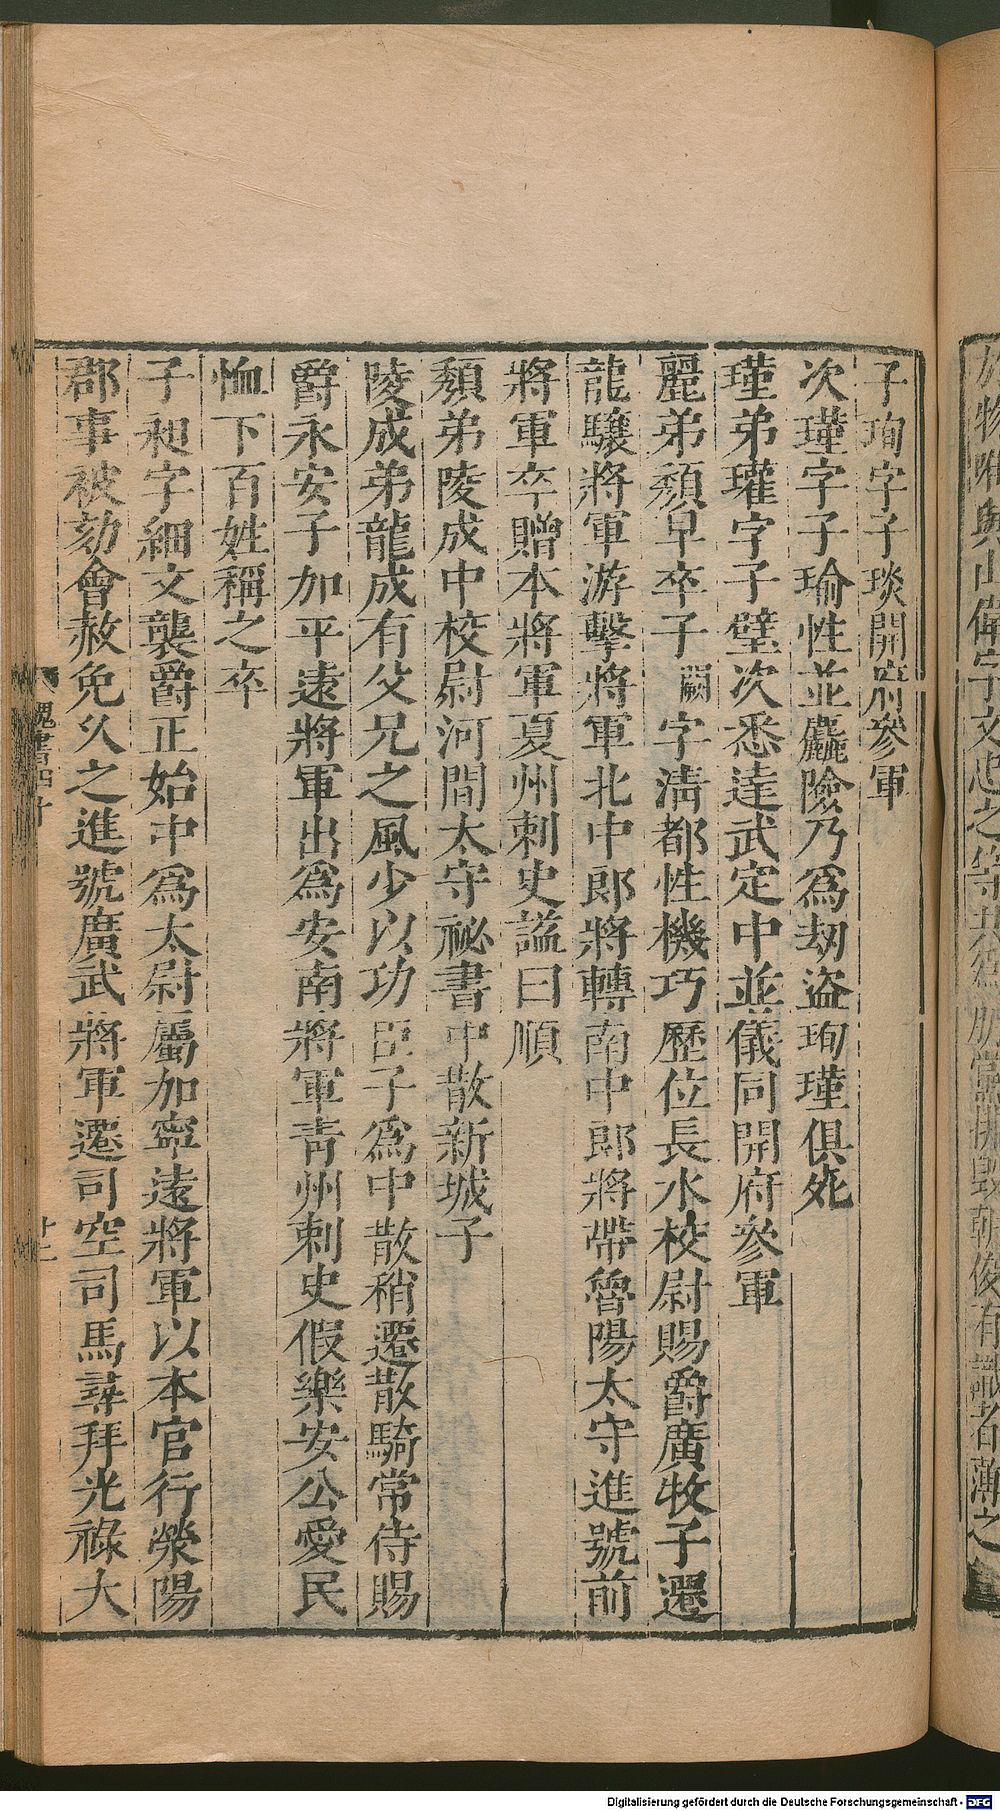 子珣字子琰開府參軍
次瑾字子瑜性並麤險乃爲劫盜珣瑾俱死
瑾弟瓘字子璧次悉達武定中並儀同開府參軍
麗弟頹早卒子闕字清都性機巧歷位長水校尉賜爵廣牧子遷
龍驤將軍游擊將軍北中郎將轉南中郎將帶魯陽太守進號前
將軍卒贈本將軍夏州刺史謚曰順
頹弟陵成中校尉河間太守祕書中散新城子
陵成弟龍成有父兄之風少以功臣子爲中散稍遷散騎常侍賜
爵永安子加平遠將軍出爲安南將軍青州刺史假樂安公愛民
恤下百姓稱之卒
子昶字細文襲爵正始中爲太尉屬加寧遠將軍以本官行滎陽
郡事被劾會赦免久之進號廣武將軍遷司空司馬尋拜光祿大
魏書四十
廿二
Digitalisierung gefördert durch die Deutsche Forschungsgemeinschaft - DFG